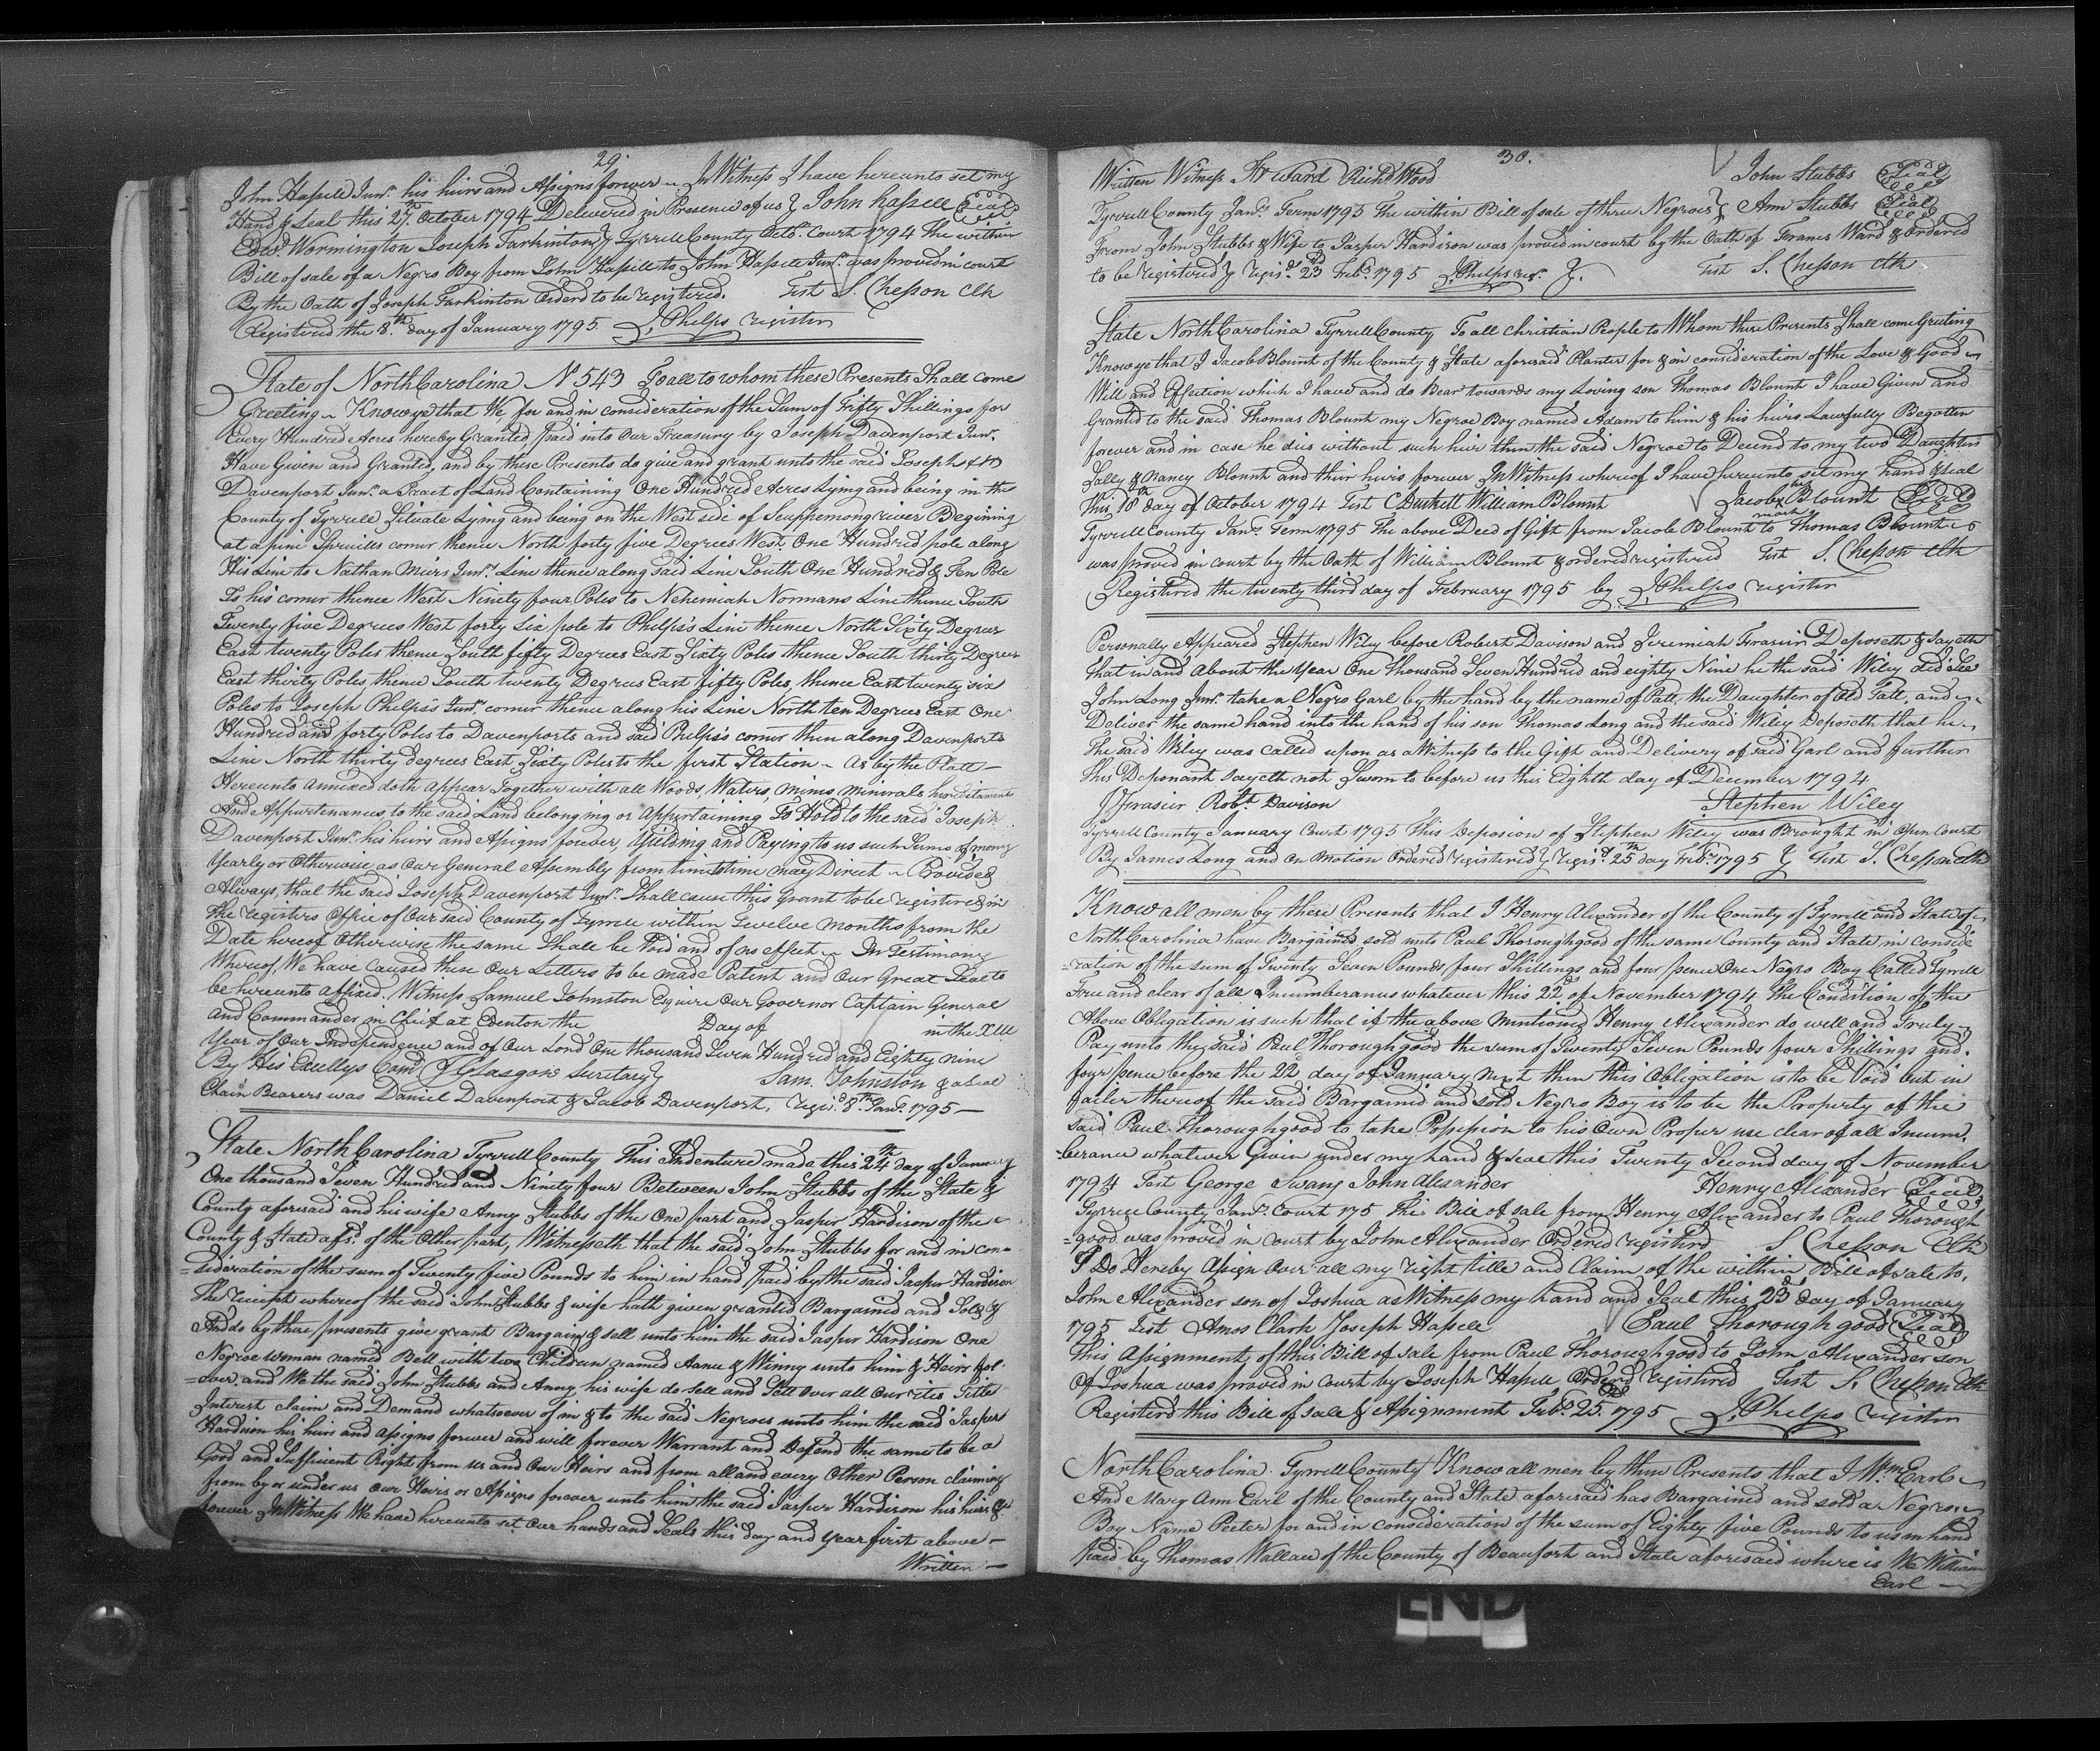 29.
John Hassell Junr. his heirs and Assigns forever ~ In Witness I have hereunto set my
Hand & Seal this 27th October 1794 Delivered in Presence of us } John hassell Seal
Edwd. Wormington Joseph Tarkinton } Tyrrell County Octo. Court 1794 The within
Bill of sale of a Negro Boy from John Hassell to John Hassell Junr. was proved in court
By the Oath of Joseph Tarkinton Orderd to be registered. Test S. Chesson Clk
Registered the 8th day of January 1795 J, Phelps register
State of North Carolina No 543 To all to whom these Presents Shall come
Greeting ~ Know ye that We, for and in consideration of the Sum of Fifty Shillings for
Every Hundred Acres hereby Granted, paid into Our Treasury by Joseph Davenport Junr.
Have Given and Granted, and by these Presents do give and grant unto the said Joseph
Davenport Junr. a Tract of Land Containing One Hundred Acres Lying and being in the
County of Tyrrell Situate Lying and being on the West side of Scuppernong river Begining
at a pine Spruills corner thence North forty five Degrees West. One Hundred pole along
His Line to Nathan Miers Junr. Line thence along said Line South One Hundred & Ten Pole
To his corner thence West Ninety four Poles to Nehemiah Normans Line thence South
Twenty five Degrees West forty Six pole to Phelps's Line thence North Sixty Degrees
East twenty Poles thence South fifty Degrees East Sixty Poles thence South thirty Degrees
East thirty Poles, thence South twenty Degrees East fifty Poles, thence East twenty six
Poles to Joseph Phelps's Junr. corner thence along his Line North ten Degrees East One
Hundred and forty Poles to Davenports and said Phelps's corner then along Davenports
Line North thirty degrees East Sixty Poles to the first Station ~ As by the Platt —
Hereunto annexed doth appear Together with all Woods, Waters, mines, minerals hereditaments
And Appurtenances to the said Land belonging or Appertaining To Hold to the said Joseph
Davenport Junr. his heirs and Assigns forever, Yielding and Paying to us such Sums of money
Yearly or Otherwise as Our General Assembly from time to time may Direct ~ Provided
Always, that the said Joseph Davenport Junr. Shall cause this Grant to be registered in
the registers Office of Our said County of Tyrrell within Twelve months from the
Date hereof Otherwise the same Shall be Void and of no effect ~ In Testimony
Whereof, We have caused these Our Letters to be made Patent and Our Great Seal to
be hereunto affixed. Witness Samuel Johnston Esquire Our Governor Captain General
and Commander in Chief at Edenton the Day of in the XIII
Year of Our Independence and of Our Lord One thousand Seven Hundred and Eighty nine
By His Excellys Comd. J Glasgow Secretary } Sam. Johnston & a Seal
Chain Bearers was Daniel Davenport & Jacob Davenport, regis. 8th Jany. 1795 —
State North Carolina Tyrrell County This Indenture made this 24th day of January
One thousand Seven Hundred and Ninety four Between John Stubbs of the State &
County aforesaid and his wife Anny Stubbs of the One part and Jasper Hardison of the
County & State afsd. of the Other part, Witnesseth that the said John Stubbs for and in con=
=sideration of the sum of Twenty five Pounds to him in hand paid by the said Jasper Hardison
The receipt whereof the said John Stubbs & wife hath given granted Bargained and Sold &
And do by these presents give grant Bargain & sell unto him the said Jasper Hardison One
Negroe woman named Bell with two Children named Annu & Winny unto him & Heirs for
=ever, and We the said John Stubbs and Anny his wife do sell and Sett over all Our rite Title
Interest claim and Demand whatsoever of in & to the said Negroes unto him the said Jasper
Hardison his heirs and Assigns forever and will forever Warrant and Defend the same to be a
Good and Sufficient Right from us and Our Heirs and from all and every Other Person claiming
from by or under us Our Heirs or Assigns forever unto him the said Jasper Hardison his heirs &
forever In Witness We have hereunto set Our hands and Seals this day and year first above —
Written —
30.
Written Witness Fr Ward Richd Wood John Stubbs Seal
Tyrrell County Jany. Term 1795 The within Bill of sale of three Negroes } Ann Stubbs Seal
From John Stubbs & Wife to Jasper Hardison was proved in court by the Oath of Frances Ward & ordered
to be registered } regisd. 23d Feby. 1795 J, Phelps regr. Test S. Chesson Clk
State North Carolina Tyrrell County To all christian People to Whom these Presents Shall come Greeting
Know ye that I Jacob Blount of the County & State aforesaid Planter for & in consideration of the Love & Good
Will and Effection which I have and do Bear towards my Loving son Thomas Blount I have Given and
Granted to the said Thomas Blount my Negroe Boy named Adam to him & his heirs Lawfully Begotten
forever and in case he dies without such heir then the said Negroe to Decend to my two Daughters
Sally & Nancy Blount and their heirs forever In Witness whereof I have hereunto set my hand & Seal
This 10th day of October 1794 Test C Duskett William Blount Jacob his x mark Blount Seal
Tyrrell County Jany. Term 1795 The above Deed of Gift from Jacob Blount to Thomas Blount
was proved in court by the Oath of William Blount & ordered registered Test S. Chesson Clk
Registered the twenty third day of February 1795 by J, Phelps register
Personally Appeared Stephen Wiley before Robert Davison and Jeremiah Frasier Deposeth & Sayeth
That in and about the Year One Thousand Seven Hundred and eighty Nine he the said Wiley did See
John Long Junr. take a Negro Garl by the hand by the name of Patt, the Daughter of Old Patt, and
Deliver the same hand into the hand of his son Thomas Long and the said Wiley Deposeth that he
The said Wiley was called upon as a Witness to the Gift and Delivery of said Garl and further
This Deponant Sayeth not Sworn to before us this Eighth day of December 1794
J Frasier Robt. Davison Stephen Wiley
Tyrrell County January Court 1795 This Deposion of Stephen Wiley was Brought in Open Court
By James Long and on motion Ordered registered } regisd 25th day Feby. 1795 } Test S. Chesson Clk
Know all men by these Presents that I Henry Alexander of the County of Tyrrell and State of
North Carolina have Bargained sold unto Paul Thoroughgood of the same County and State in conside
=ration of the sum of Twenty Seven Pounds four Shillings and four pence One Negro Boy Called Tyrrell
Free and clear of all Incumberances whatever this 22d of November 1794 The Condition of the
Above Obligation is such that if the above mentioned Henry Alexander do well and Truly
Pay unto the said Paul Thoroughgood the sum of Twenty Seven Pounds four Shillings and
four pence before the 22 day of January next then this Obligation is to be Void but in
failer thereof the said Bargained and sold Negro Boy is to be the Property of the
said Paul Thoroughgood to take Possession to his Own Proper use clear of all Incum,
=berance whatever Given under my hand & seal this Twenty Second day of November
1794 Test George Swany John Alexander Henry Alexander Seal
Tyrrell County Jany. Court 175 This Bill of sale from Henry Alexander to Paul Thorough
=good was proved in court by John Alexander Ordered registerd S Chesson Clk
I Do Hereby Assign Over all my right title and Claim of the within Bill of sale to,
John Alexander son of Joshua as Witness my hand and Seal this 23d day of January
1795 Test Amos Clark Joseph Hassell Paul Thoroughgood Seal
This Assignment of this Bill of sale from Paul Thoroughgood to John Alexander son
Of Joshua was proved in court by Joseph Hassell Ordered registered Test S. Chesson Clk
Registerd this Bill of sale & Assignment Feby. 25th. 1795 J, Phelps register
North Carolina Tyrrell County Know all men by these Presents that I Wm. Earls
And Mary Ann Earl of the County and State aforesaid has Bargained and sold a Negroe
Boy Name Peeter for and in consideration of the sum of Eighty five Pounds to us in hand
Paid by Thomas Wallace of the County of Beaufort and State aforesaid where is We William
Earl —
END